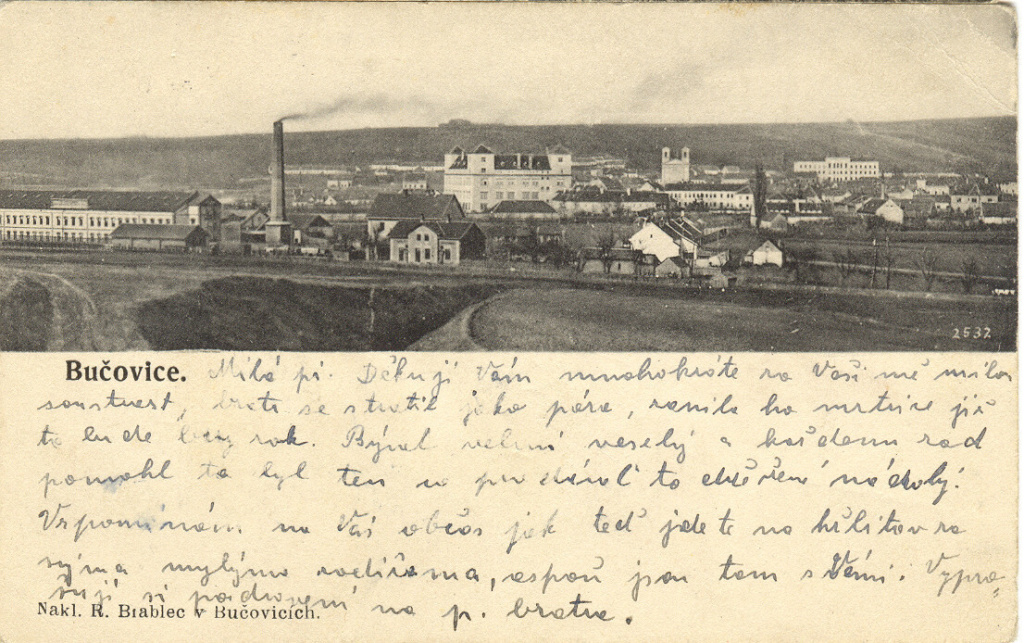 2532
Bučovice. Milá pí. Děkuji Vám mnohokráte za Vaši mě milou
soustrast, bratr se ztratil jako pára, ranila ho mrtvice již
to bude rok. Býval velmi veselý a každemu rad
pomohl to byl ten co prodával to nádobý.
Vzpomínám na Vás občas jak teď jdete na hřbitov za
svýma mylýma rodičema, aspoň jsou tam s Vámi. Vypro-
šuji si pozdravení na p. bratra.
Nakl. R. Brablec v Bučovicích.